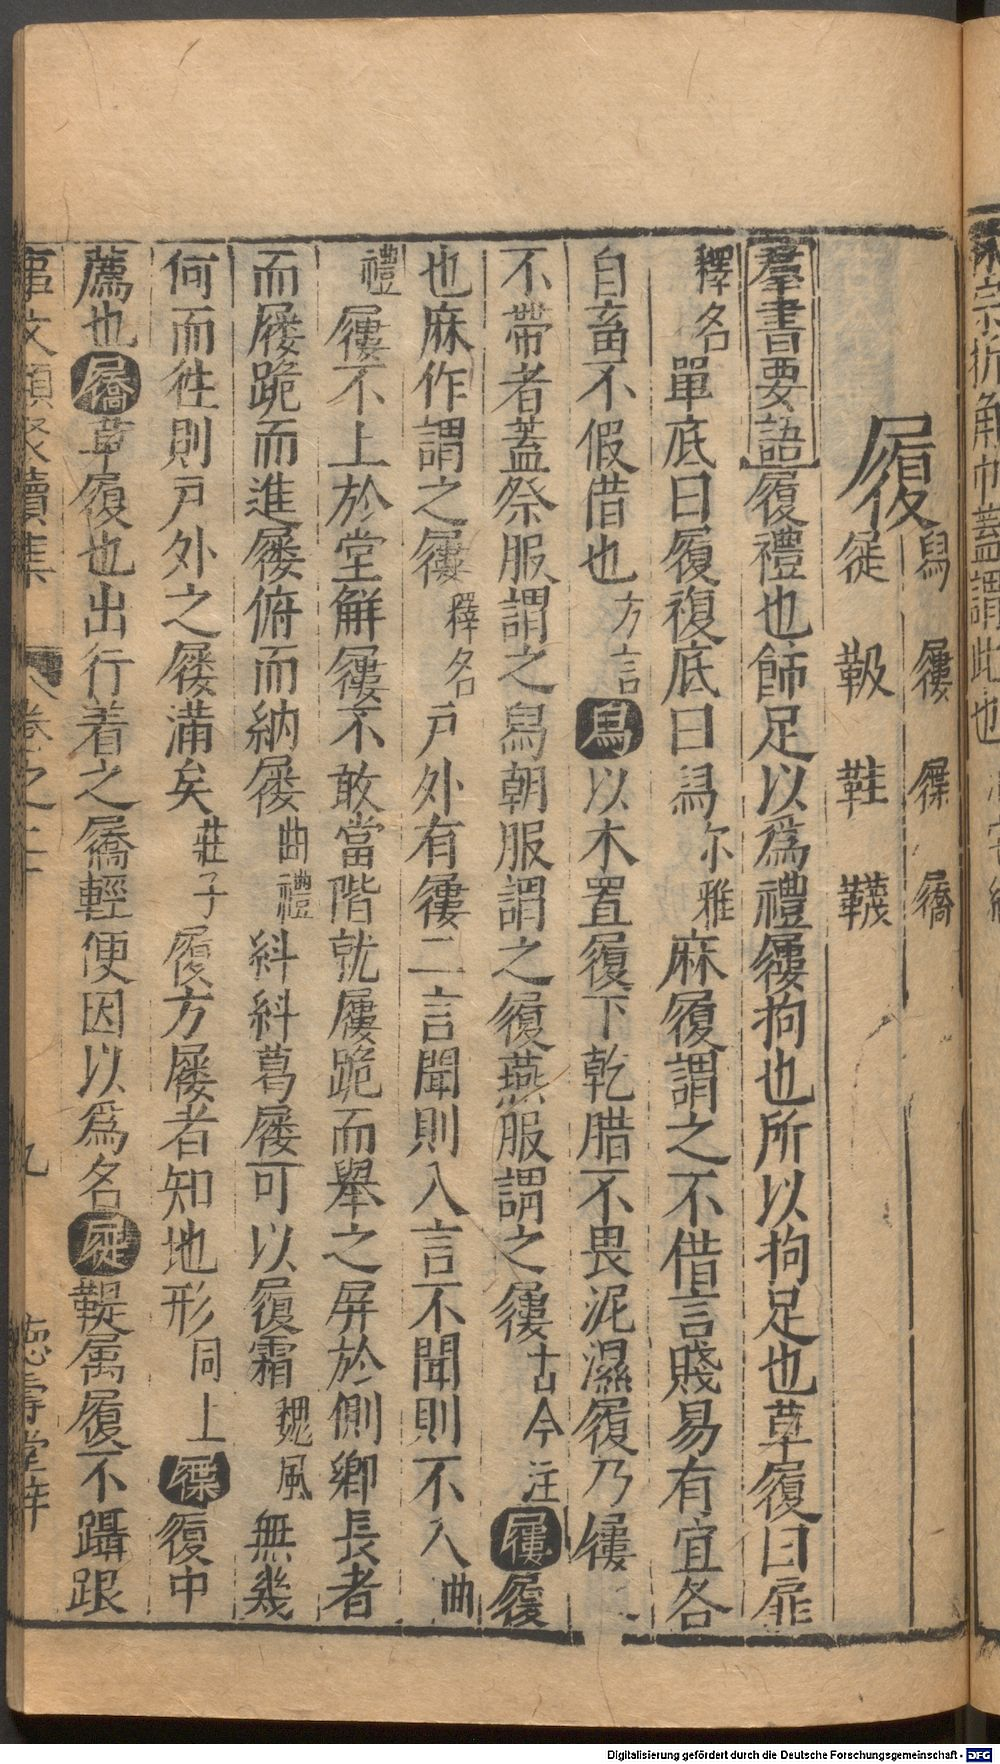 履舄屨屧屩
屣靸鞋韈
羣書要語履禮也飾足以爲禮屨拘也所以拘足也草履曰屝
釋名單底曰履複底曰舄尔雅麻履謂之不借言賤易有宜各
自畜不假借也方言舄以木置履下乾腊不畏泥濕履乃屨
不帶者蓋祭服謂之舄朝服謂之履燕服謂之屨古今注屨履
也麻作謂之屨釋名戶外有屨二言聞則入言不聞則不入曲
禮屨不上於堂觧屨不敢當階就屨跪而舉之屏於側鄉長者
而屨跪而進屨俯而納屨曲禮糾糾葛屨可以履霜魏風無幾
何而徃則戶外之屨滿矣莊子履方屨者知地形同上屧履中
薦也屩草履也出行着之屩輕便因以爲名屣鞮属履不躡跟
事文類聚續集 卷之二十 九 德壽堂梓
Digitalisierung gefördert durch die Deutsche Forschungsgemeinschaft - DFG